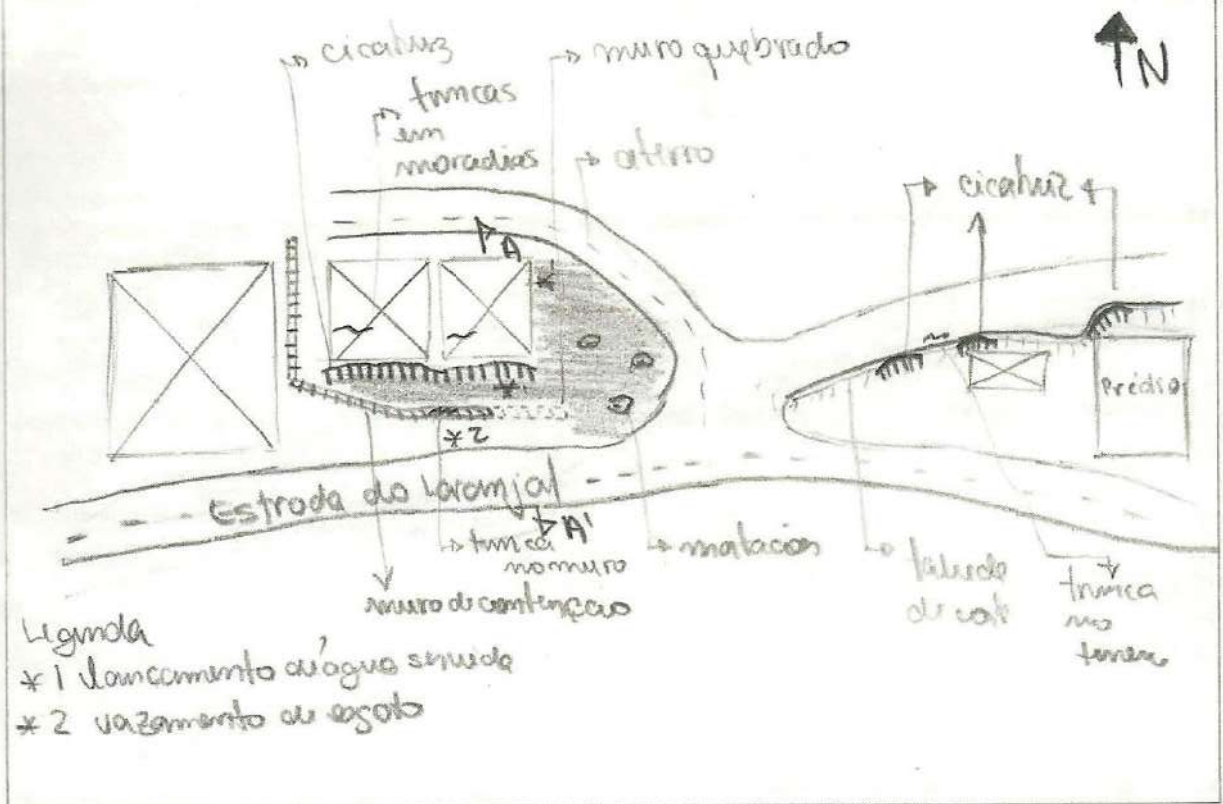 cicatriz
muro quebrado
N
trincas
em
moradias
aterro
cicatriz
A
Prédio
*2
Estrada do Laranjal
A'
trinca
no muro
matacões
talude
de corte
trinca
no
terreno
muro de contenção
Legenda
*1 lançamento de água servida
*2 vazamento de esgoto